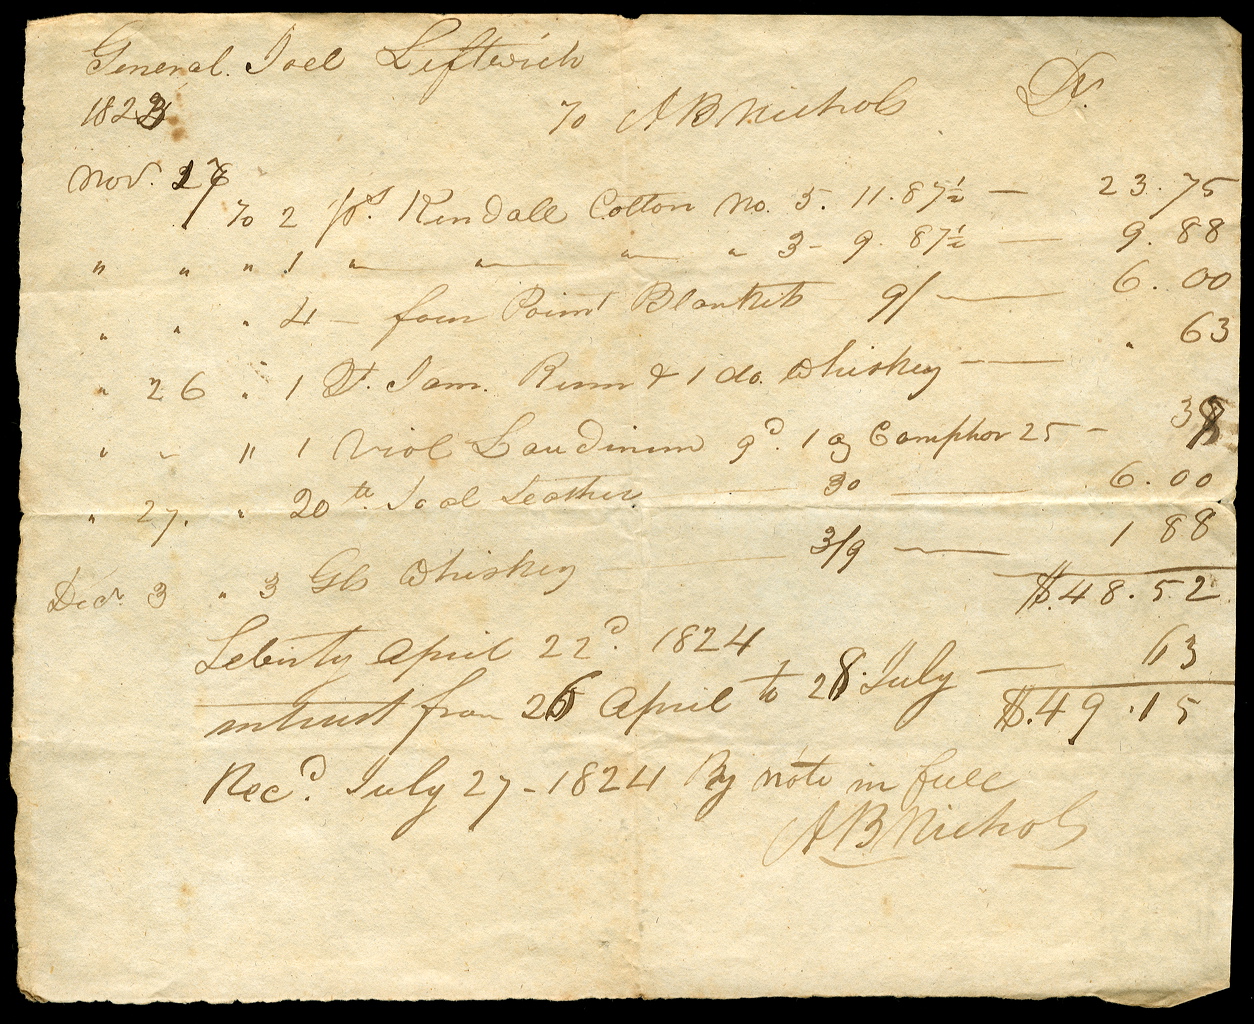 General Joel Leftwich
1823 To A B Nichols Dr.
Nov. 17
To 2 ps. Kendall Cotton No. 5. 11.87½ — 23.75
" " " 1 " " " " 3 - 9. 87½ — 9.88
" " " 4 – four Point Blankets 9/ — 6.00
" 26 " 1 qt. Jam. Rum & 1 do. Whiskey — " 63
" " " 1 Viol Laudinum 9d. 1 oz Camphor 25 – 38
" 27. " 20 lb Soal Leather 30 — 6.00
Decr. 3 " 3 Gls Whiskey 3/9 — 1 88
$.48.52
Liberty April 22d. 1824
intrust from 26 April to 28 July — 63
$.49.15
Recd. July 27 – 1824 By note in full
A B Nichols